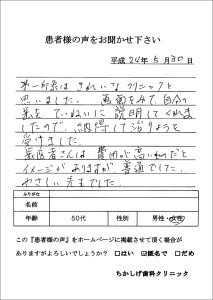 患者様の声をお聞かせ下さい
平成 24年 5月 30日
第一印象は きれいな クリニックと
思いました。 画面をみて、自分の
歯を ていねいに 説明してくれま
したので、納得して治りょうを
受けました。
歯医者さんは 費用が高い
イメージがありますが 普通でした。
やさしい先生でした。
ふりがな
名前
年齢 50代 性別 男性・女性
この『患者様の声』をホームページに掲載させて頂く場合が
ありますがよろしいでしょうか? □はい ☑匿名で □だめ
ちかしげ歯科クリニック